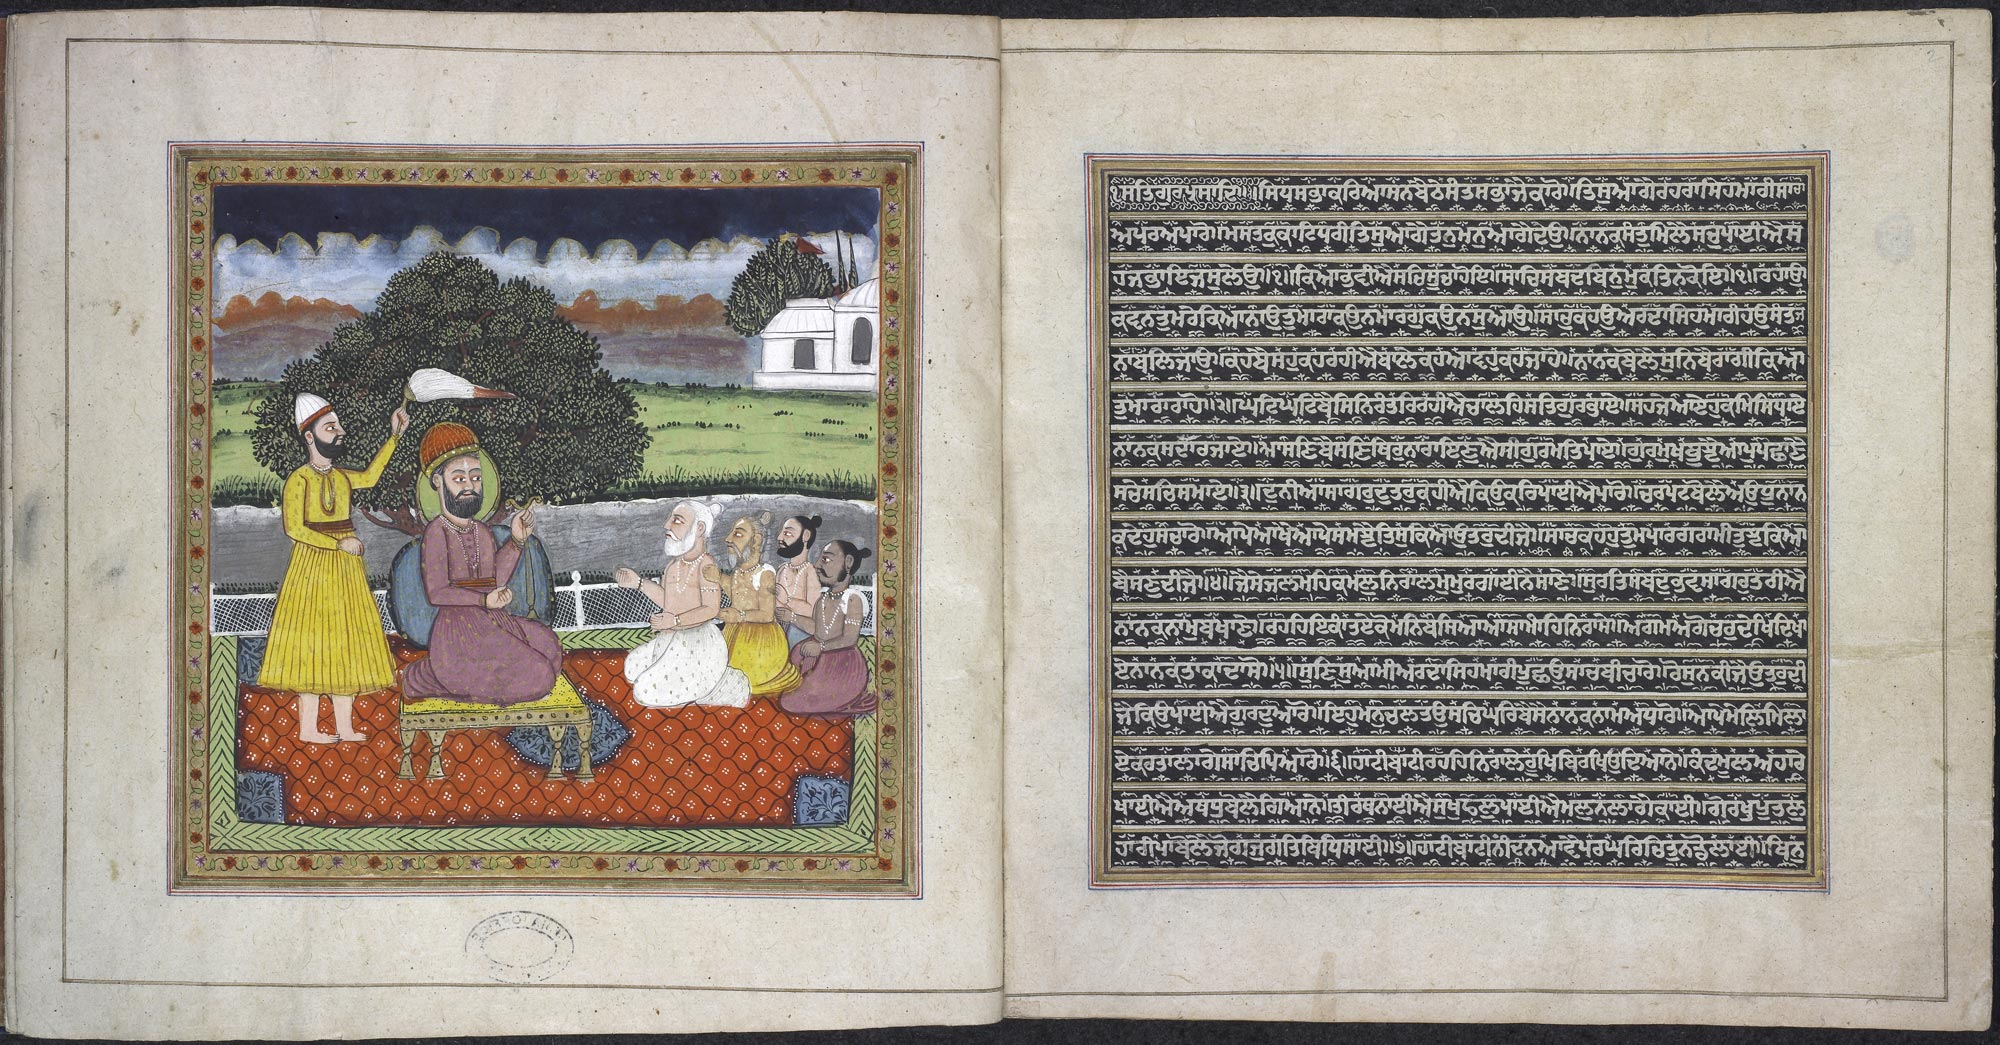 ੴਸਤਿਗੁਰਪ੍ਰਸਾਦਿ॥ਸਿਧਸਭਾਕਰਿਆਸਨਬੈਠੇਸੰਤਸਭਾਜੈਕਾਰੋ॥ਤਿਸੁਆਗੈਰਹਰਾਸਿਹਮਾਰੀਸਾਚਾ
ਅਪਰਅਪਾਰੋ॥ਮਸਤਕੁਕਾਟਿਧਰੀਤਿਸੁਆਗੈਤਨਮਨਆਗੈਦੇਉ॥ਨਾਨਕਸੰਤੁਮਿਲੈਸਚੁਪਾਈਐਸ
ਹਜਭਾਇਜਸੁਲੇਉ॥੧॥ਕਿਆਭਵੀਐਸਚਿਸੂਚਾਹੋਇ॥ਸਾਚਿਸਬਦਬਿਨੁਮੁਕਤਿਨਕੋਇ॥੧॥ਰਹਾਉ॥
ਕਵਨਤੁਮੇਕਿਆਨਾਉਤੁਮਾਰਾਕਉਨੁਮਾਰਗੁਕਉਨੁਸੁਆਉ॥ਸਾਚੁਕਹਉਅਰਦਾਸਿਹਮਾਰੀਹਉਸੰਤਜ
ਨਾਬਲਿਜਾਉ॥ਕਹਬੈਸਹੁਕਹਰਹੀਐਬਾਲੇਕਹਆਵਹੁਕਹਜਾਹੋ॥ਨਾਨਕਬੋਲੈਸੁਨਿਬੈਰਾਗੀਕਿਆ
ਤੁਮਾਰਾਰਾਹੋ॥੨॥ਘਟਿਘਟਿਬੈਸਿਨਿਰੰਤਰਿਰਹੀਐਚਾਲਹਿਸਤਿਗੁਰਭਾਏ॥ਸਹਜੇਆਏਹੁਕਮਿਸਿਧਾਏ
ਨਾਨਕਸਦਾਰਜਾਏ॥ਆਸਣਿਬੈਸਣਿਥਿਰੁਨਾਰਾਇਣੁਐਸੀਗੁਰਮਤਿਪਾਏ॥ਗੁਰਮੁਖਬੂਝੈਆਪੁਪਛਾਣੈ
ਸਚੇਸਚਿਸਮਾਏ॥੩॥ਦੁਨੀਆਸਾਗਰੁਦੁਤਰੁਕਹੀਐਕਿਉਕਰਿਪਾਈਐਪਾਰੋ॥ਚਰਪਟਬੋਲੈਅਉਧੂਨਾਨ
ਕਦੇਹੁਸਚਾਬੀਚਾਰੋ॥ਆਪੇਆਖੈਆਪੇਸਮਝੈਤਿਸੁਕਿਆਉਤਰੁਦੀਜੈ॥ਸਾਚੁਕਹਹੁਤੁਮਪਾਰਗਰਾਮੀਤੁਝੁਕਿਆ
ਬੈਸਣੁਦੀਜੈ॥੪॥ਜੈਸੇਜਲਮਹਿਕਮਲੁਨਿਰਾਲਮੁਮੁਰਗਾਈਨੈਸਾਣੇ॥ਸੁਰਤਿਸਬਦਿਭਵਸਾਗਰੁਤਰੀਐ
ਨਾਨਕਨਾਮੁਵਖਾਣੇ॥ਰਹਹਿਇਕਾਂਤਏਕੋਮਨਿਵਸਿਆਆਸਾਮਾਹਿਨਿਰਾਸੋ॥ਅਗਮਅਗੋਚਰੁਦੇਖਿਦਿਖਾ
ਏਨਾਨਕਤਾਕਾਦਾਸੋ॥੫॥ਸੁਣਿਸੁਆਮੀਅਰਦਾਸਿਹਮਾਰੀਪੂਛਉਸਾਚਬੀਚਾਰੋ॥ਰੋਸੁਨਕੀਜੈਉਤਰੁਦੀ
ਜੈਕਿਉਪਾਈਐਗੁਰਦੁਆਰੋ॥ਇਹੁਮਨੁਚਲਤਉਸਚਘਰਿਬੈਸੈਨਾਨਕਨਾਮੁਅਧਾਰੋ॥ਆਪੇਮੇਲਿਮਿਲਾ
ਏਕਰਤਾਲਾਗੈਸਾਚਿਪਿਆਰੋ॥੬॥ਹਾਟੀਬਾਟੀਰਹਹਿਨਿਰਾਲੇਰੂਖਿਬਿਰਖਿਉਦਿਆਨੇ॥ਕੰਦਮੂਲੁਅਹਾਰੋ
ਖਾਈਐਅਉਧੂਬੋਲੈਗਿਆਨੇ॥ਤੀਰਥਨਾਈਐਸੁਖੁਫਲੁਪਾਈਐਮੈਲੁਨਲਾਗੈਕਾਈ॥ਗੋਰਖਪੂਤੁਲੋ
ਹਾਰੀਪਾਬੋਲੈਜੋਗਜੁਗਤਿਬਿਧਿਸਾਈ॥੭॥ਹਾਟੀਬਾਟੀਨੀਦਨਆਵੈਪਰਘਰਿਚਿਤੁਨਡੋੁਲਾਈ॥ਬਿਨੁ